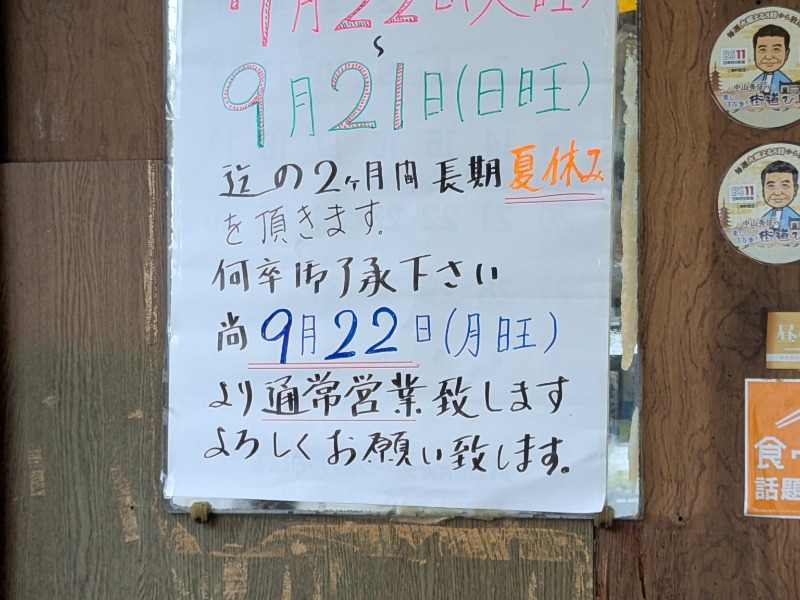 7月22日(火旺)
~
9月21日(日旺)
迄の2ヶ月間長期夏休み
を頂きます。
何卒御了承下さい
尚9月22日(月旺)
より通常営業致します
よろしくお願い致します。
BS11
中山秀征の
BS11
中山秀征の
昼
食べ
話題